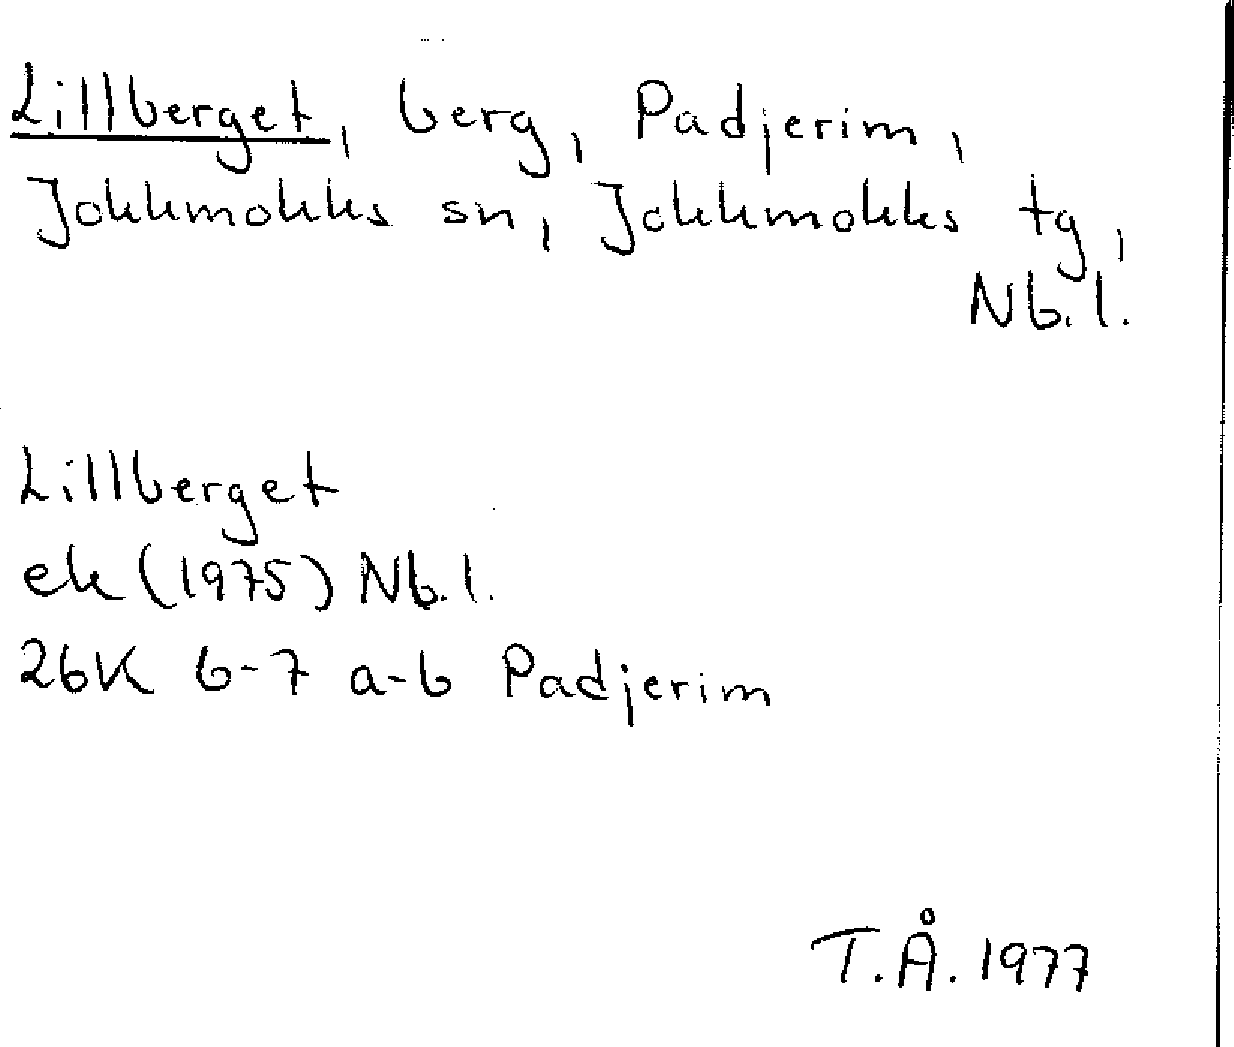 Lillberget, berg, Padjerim,
Jokkmokks sn, Jokkmokks tg,
Nb.l.
Lillberget
ek (1975) Nb.l.
26K 6-7 a-b Padjerim
T.Å. 1977